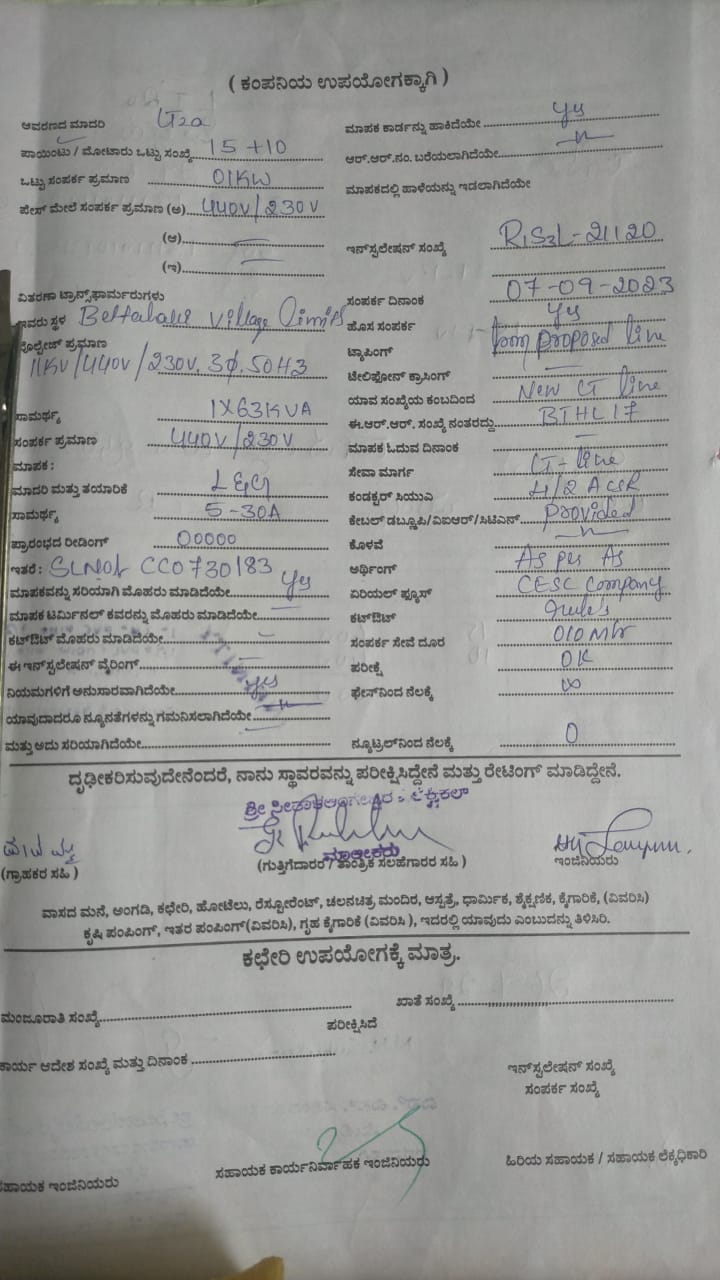 ( ಕಂಪನಿಯ ಉಪಯೋಗಕ್ಕಾಗಿ )
ಆವರಣದ ಮಾದರಿ
ಪಾಯಿಂಟು / ಮೋಟಾರು ಒಟ್ಟು ಸಂಖ್ಯೆ 15 +10
ಒಟ್ಟು ಸಂಪರ್ಕ ಪ್ರಮಾಣ 01KW
ಫೇಸ್ ಮೇಲೆ ಸಂಪರ್ಕ ಪ್ರಮಾಣ (ಅ) 440V/230V
(ಆ)
(ಇ)
ವಿತರಣಾ ಟ್ರಾನ್ಸ್‌ಫಾರ್ಮರುಗಳು
ಇವರು ಸ್ಥಳ village limits
ವೋಲ್ಟೇಜ್ ಪ್ರಮಾಣ
11KV/440V/230V, 3Φ, 50HZ
ಸಾಮರ್ಥ್ಯ 1X63KVA
ಸಂಪರ್ಕ ಪ್ರಮಾಣ 440V/230V
ಮಾಪಕ :
ಮಾದರಿ ಮತ್ತು ತಯಾರಿಕೆ L&G
ಸಾಮರ್ಥ್ಯ 5-30A
ಪ್ರಾರಂಭದ ರೀಡಿಂಗ್ 00000
ಇತರೆ : SLNo: CC0730183
ಮಾಪಕವನ್ನು ಸರಿಯಾಗಿ ಮೊಹರು ಮಾಡಿದೆಯೇ yes
ಮಾಪಕ ಟರ್ಮಿನಲ್ ಕವರನ್ನು ಮೊಹರು ಮಾಡಿದೆಯೇ
ಕಟ್‌ಔಟ್ ಮೊಹರು ಮಾಡಿದೆಯೇ
ಈ ಇನ್‌ಸ್ಟಲೇಷನ್ ವೈರಿಂಗ್
ನಿಯಮಗಳಿಗೆ ಅನುಸಾರವಾಗಿದೆಯೇ yes
ಯಾವುದಾದರೂ ನ್ಯೂನತೆಗಳನ್ನು ಗಮನಿಸಲಾಗಿದೆಯೇ
ಮತ್ತು ಅದು ಸರಿಯಾಗಿದೆಯೇ
ಮಾಪಕ ಕಾರ್ಡನ್ನು ಹಾಕಿದೆಯೇ yes
ಆರ್.ಆರ್.ನಂ. ಬರೆಯಲಾಗಿದೆಯೇ
ಮಾಪಕದಲ್ಲಿ ಹಾಳೆಯನ್ನು ಇಡಲಾಗಿದೆಯೇ
ಇನ್‌ಸ್ಟಲೇಷನ್ ಸಂಖ್ಯೆ
ಸಂಪರ್ಕ ದಿನಾಂಕ 07-09-2023
ಹೊಸ ಸಂಪರ್ಕ Yes
ಟ್ಯಾಪಿಂಗ್ from proposed line
ಟೆಲಿಫೋನ್ ಕ್ರಾಸಿಂಗ್
ಯಾವ ಸಂಖ್ಯೆಯ ಕಂಬದಿಂದ New line
ಈ.ಆರ್.ಆರ್. ಸಂಖ್ಯೆ ನಂತರದ್ದು BTHL17
ಮಾಪಕ ಓದುವ ದಿನಾಂಕ
ಸೇವಾ ಮಾರ್ಗ line
ಕಂಡಕ್ಟರ್ ಸಿಯುಎ ACSR
ಕೇಬಲ್ ಡಬ್ಲ್ಯೂಪಿ/ವಿಐಆರ್/ಸಿಟಿಎಸ್ provided
ಕೊಳವೆ
ಅರ್ಥಿಂಗ್ As per As
ಏರಿಯಲ್ ಫ್ಯೂಸ್ CESC Company
ಕಟ್‌ಔಟ್
ಸಂಪರ್ಕ ಸೇವೆ ದೂರ 010 Mtr
ಪರೀಕ್ಷೆ OK
ಫೇಸ್‌ನಿಂದ ನೆಲಕ್ಕೆ ∞
ನ್ಯೂಟ್ರಲ್‌ನಿಂದ ನೆಲಕ್ಕೆ 0
ದೃಢೀಕರಿಸುವುದೇನೆಂದರೆ, ನಾನು ಸ್ಥಾವರವನ್ನು ಪರೀಕ್ಷಿಸಿದ್ದೇನೆ ಮತ್ತು ರೇಟಿಂಗ್ ಮಾಡಿದ್ದೇನೆ.
ಮಾಲೀಕರು
(ಗ್ರಾಹಕರ ಸಹಿ )
(ಗುತ್ತಿಗೆದಾರರ / ತಾಂತ್ರಿಕ ಸಲಹೆಗಾರರ ಸಹಿ )
ಇಂಜಿನಿಯರು
ವಾಸದ ಮನೆ, ಅಂಗಡಿ, ಕಛೇರಿ, ಹೋಟೆಲು, ರೆಸ್ಟೋರೆಂಟ್, ಚಲನಚಿತ್ರ ಮಂದಿರ, ಆಸ್ಪತ್ರೆ, ಧಾರ್ಮಿಕ, ಶೈಕ್ಷಣಿಕ, ಕೈಗಾರಿಕೆ, (ವಿವರಿಸಿ)
ಕೃಷಿ ಪಂಪಿಂಗ್, ಇತರ ಪಂಪಿಂಗ್(ವಿವರಿಸಿ), ಗೃಹ ಕೈಗಾರಿಕೆ (ವಿವರಿಸಿ ), ಇದರಲ್ಲಿ ಯಾವುದು ಎಂಬುದನ್ನು ತಿಳಿಸಿರಿ.
ಕಛೇರಿ ಉಪಯೋಗಕ್ಕೆ ಮಾತ್ರ.
ಮಂಜೂರಾತಿ ಸಂಖ್ಯೆ
ಖಾತೆ ಸಂಖ್ಯೆ
ಪರೀಕ್ಷಿಸಿದೆ
ಕಾರ್ಯ ಆದೇಶ ಸಂಖ್ಯೆ ಮತ್ತು ದಿನಾಂಕ
ಇನ್‌ಸ್ಟಲೇಷನ್ ಸಂಖ್ಯೆ
ಸಂಪರ್ಕ ಸಂಖ್ಯೆ
ಸಹಾಯಕ ಇಂಜಿನಿಯರು
ಸಹಾಯಕ ಕಾರ್ಯನಿರ್ವಾಹಕ ಇಂಜಿನಿಯರು
ಹಿರಿಯ ಸಹಾಯಕ / ಸಹಾಯಕ ಲೆಕ್ಕಾಧಿಕಾರಿ